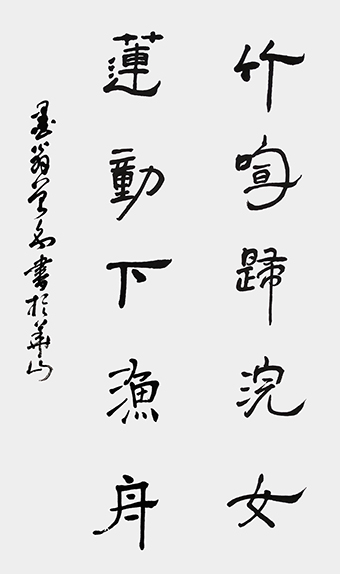 竹喧歸浣女
蓮動下漁舟
墨翁書於華山